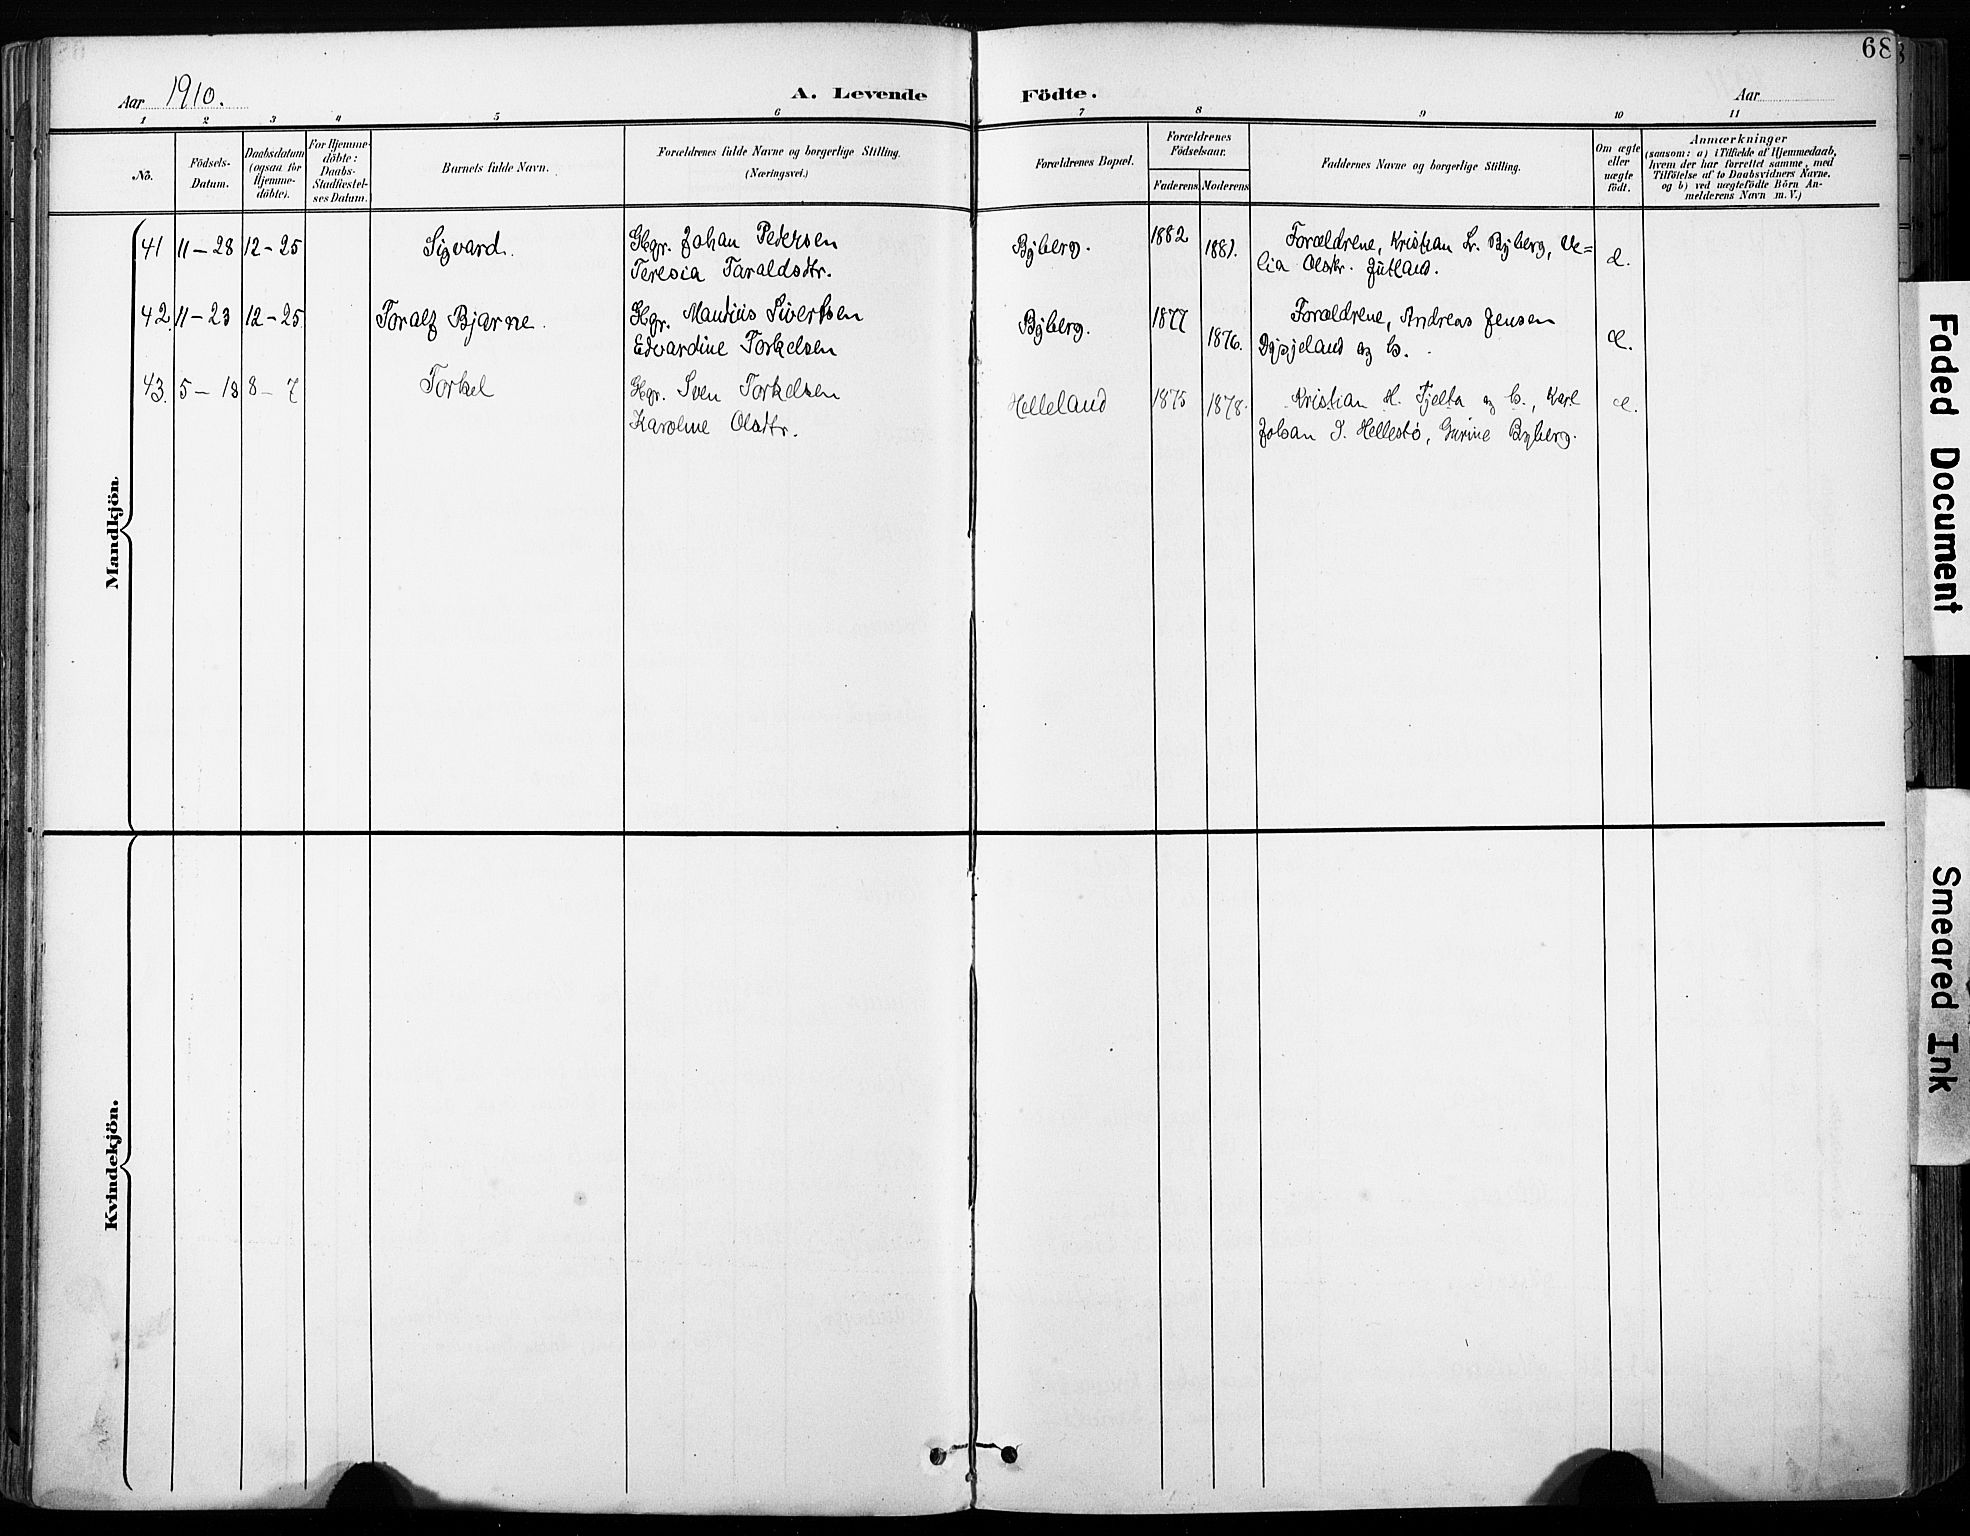 68
Aar 1910.
A. Levende Födte.
Aar
1 2 3 4 5 6 7 8 9 10 11
No.
Födsels-
Datum.
Daabsdatum
(ogsaa for
Hjemme-
döbte).
For Hjemme-
döbte:
Daabs-
Stadfæstel-
ses Datum.
Barnets fulde Navn.
Forældrenes fulde Navne og borgerlige Stilling.
(Næringsvei.)
Forældrenes Bopæl.
Forældrenes
Födselsaar.
Faderens Moderens
Faddernes Navne og borgerlige Stilling.
Om ægte
eller
uægte
födt.
Anmærkninger
(saasom: a) i Tilfælde af Hjemmedaab,
hvem der har forrettet samme, med
Tilföielse af to Daabsvidners Navne,
og b) ved uægtefödte Börn An-
melderens Navn m. V.)
Mandkjön.
41 11-28 12-25 Sigvard. Gbgr. Johan Pedersen
Teresia Taraldsdtr.
Byberg. 1882 1881. Forældrene, Kristian Byberg,
Olsdtr. Jütland. æ.
42. 11-23 12-25 Toralf Bjarne. Gbgr. Mauritius Sivertsen
Edvardine Torkelsen
Byberg. 1877 1876. Forældrene, Andreas Jensen
Dysjeland og h. æ.
43. 5-18 8-7 Torkel Gbgr. Sven Torkelsen
Karoline Olsdtr.
Helleland 1875 1878. Kristian H. Tjelta og h., Karl
Johan I. Hellestø, Gurine Byberg. æ.
Kvindekjön.
Faded Document
Smeared Ink